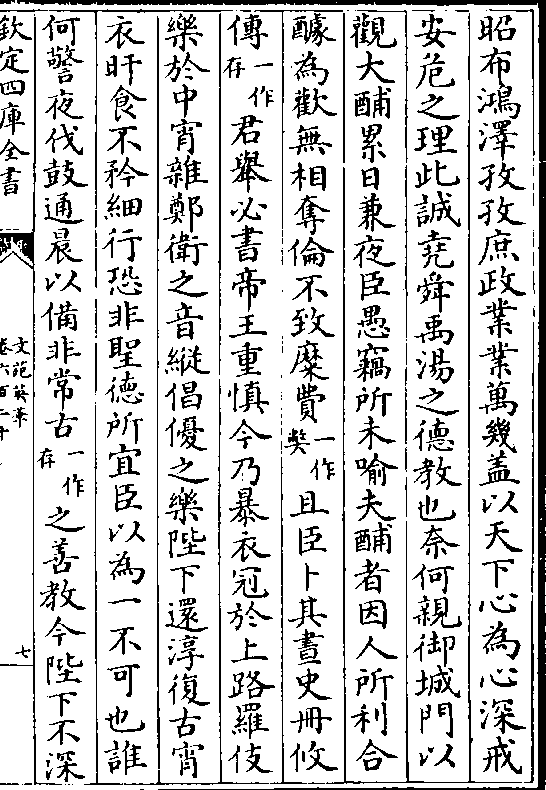 昭布鴻澤孜孜庶政業業萬幾盖以天下心為心深戒
安危之理此誠堯舜禹湯之德教也奈何親御城門以
觀大酺累日兼夜臣愚竊所未喻夫酺者因人所利合
醵為歡無相奪倫不致糜費一作獘且臣卜其晝史冊攸
傳一作存君舉必書帝王重慎今乃暴衣冠於上路羅伎
樂於中宵雜鄭衛之音縱倡優之樂陛下還淳復古宵
衣旰食不矜細行恐非聖德所宜臣以為一不可也誰
何警夜伐鼓通晨以備非常古一作存之善教今陛下不深
欽定四庫全書
文苑英華
卷六百二十
七